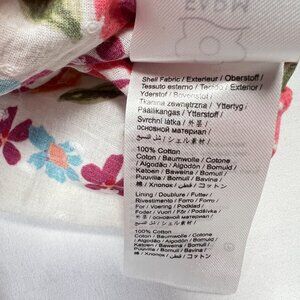 Shell Fabric / Exterieur / Oberstoff /
Tessuto esterno / Tecido / Exterior /
Yderstof / Bovenstof /
Tkanina zewnętrzna / Yttertyg /
Päällikangas / Yttersток /
Svrchní látka / 外层 /
основной материал /
/ シェル素材 /
100% Cotton
Coton / Baumwolle / Cotone
/ Algodão / Algodón / Bomuld /
Katoen / Bawełna / Bomull /
Puuvilla / Bomull / Bavlna /
棉 / Хлопок / قطن / コットン
Lining / Doublure / Futter /
Rivestimento / Forro / Forro /
For / Voering / Podklad /
Foder / Vuori / Fôr / Podšívka
100% Cotton
Coton / Baumwolle / Cotone
/ Algodão / Algodón / Bomuld /
Katoen / Bawełna / Bomull /
Puuvilla / Bomull / Bavlna /
棉 / Хлопок / قطن / コットン